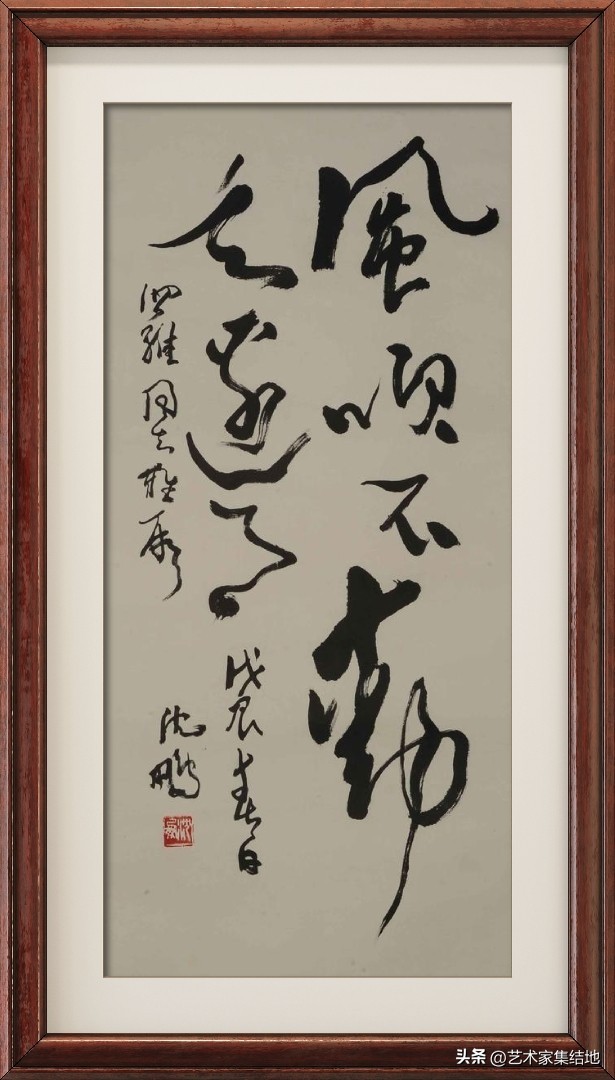 風吹不動
天邊月
戊辰春日
維同志雅屬
沈鵬
头条 @艺术家集结地